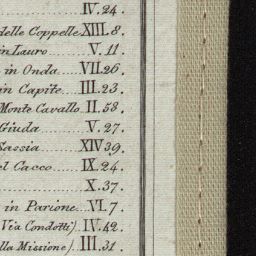 IV.24.
delle Coppelle XIII.8.
in Lauro V.11.
in Onda VII.26.
in Capite III.23.
Monte Cavallo II.58.
Giuda V.27.
Sassia XIV 39.
el Cacco IX.24.
X.37.
in Parione VI.7.
Via Condotti) IV.42.
lla Missione) III.31.